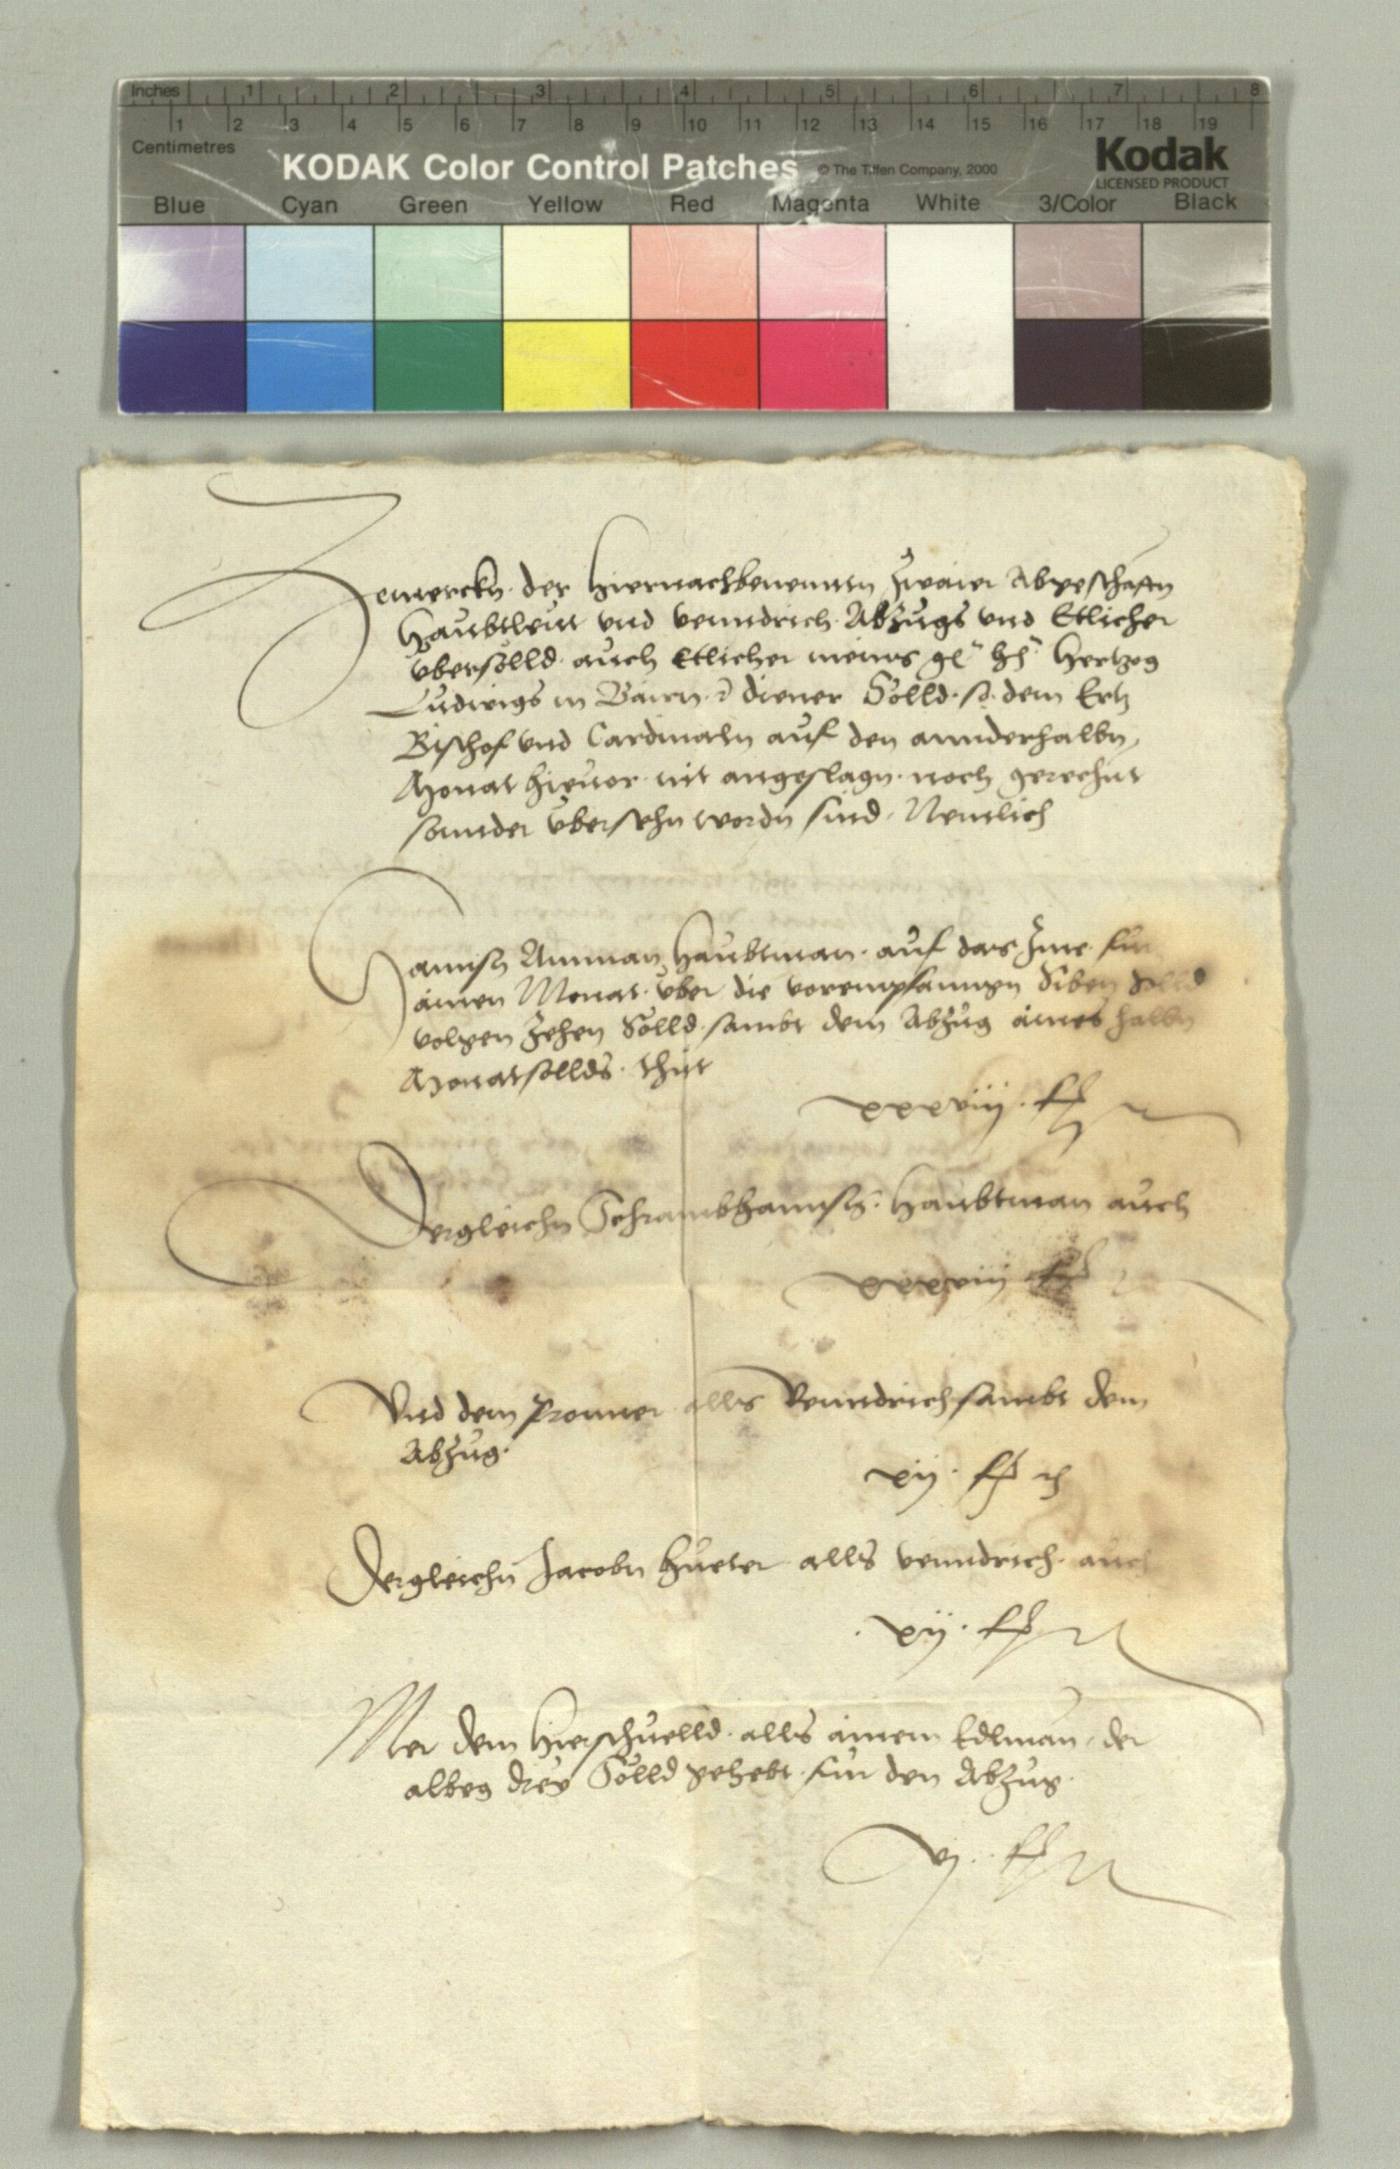 Inches 1 2 3 4 5 6 7 8
1 2 3 4 5 6 7 8 9 10 11 12 13 14 15 16 17 18 19
Centimetres
KODAK Color Control Patches © The Tiffen Company, 2000 Kodak
LICENSED PRODUCT
Blue Cyan Green Yellow Red Magenta White 3/Color Black
Zemerckn der hiernachbenenntn Zwaier Abgeschaftn
Haubtleut vnd venndrich Abzugs vnd Etlicher
vbersölld auch Etlicher meins gn hn Hertzog
Ludwigs in Bairn diener Sölld so dem Ertz
Bischof vnd Cardinaln auf den annderhalbn
Monat hieuor nit angeslagn noch gerechnt
sonnder vbersehn wordn sind Nemlich
Hannsn Amman haubtman auf das Ime fur
ainen Monat vber die vorempfanngn Siben Solld
volgen Zehen Sölld sambt dem Abzug aines halbn
Monatsollds thut
xxxviij fl
Dergleichn Schrambhannsn haubtman auch
xxxviij fl
Vnd dem Pronner alls Venndrich sambt dem
Abzug
xij fl
Dergleichn Jacobn hueter alls venndrich auch
xij fl
Mer dem Hierschuelld alls ainem Edlman der
albeg drey Sölld gehebt fur den Abzug
vj fl